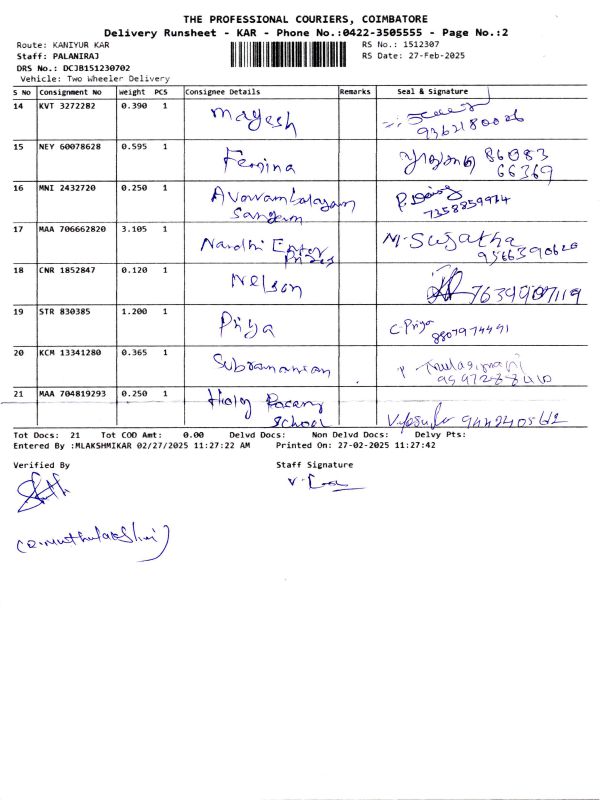 THE PROFESSIONAL COURIERS, COIMBATORE
Delivery Runsheet - KAR - Phone No.:0422-3505555 - Page No.:2
Route: KANIYUR KAR RS No.: 1512307
Staff: PALANIRAJ RS Date: 27-Feb-2025
DRS No.: DCJB151230702
Vehicle: Two Wheeler Delivery
S No Consignment No Weight PCS Consignee Details Remarks Seal & Signature
14 KVT 3272282 0.390 1 Mayesh
9362180006
15 NEY 60078628 0.595 1 Femina 86083
66369
16 MNI 2432720 0.250 1
Sangam 7358859974
17 MAA 706662820 3.105 1 Narathi Enter M. Sujatha
prizes 9566390620
18 CNR 1852847 0.120 1 Nelson 7639907119
19 STR 830385 1.200 1 Priya C. Priya
8807974491
20 KCM 13341280 0.365 1 Subramanian P
9597288410
21 MAA 704819293 0.250 1
School
Tot Docs: 21 Tot COD Amt: 0.00 Delvd Docs: Non Delvd Docs: Delvy Pts:
Entered By :MLAKSHMIKAR 02/27/2025 11:27:22 AM Printed On: 27-02-2025 11:27:42
Verified By Staff Signature